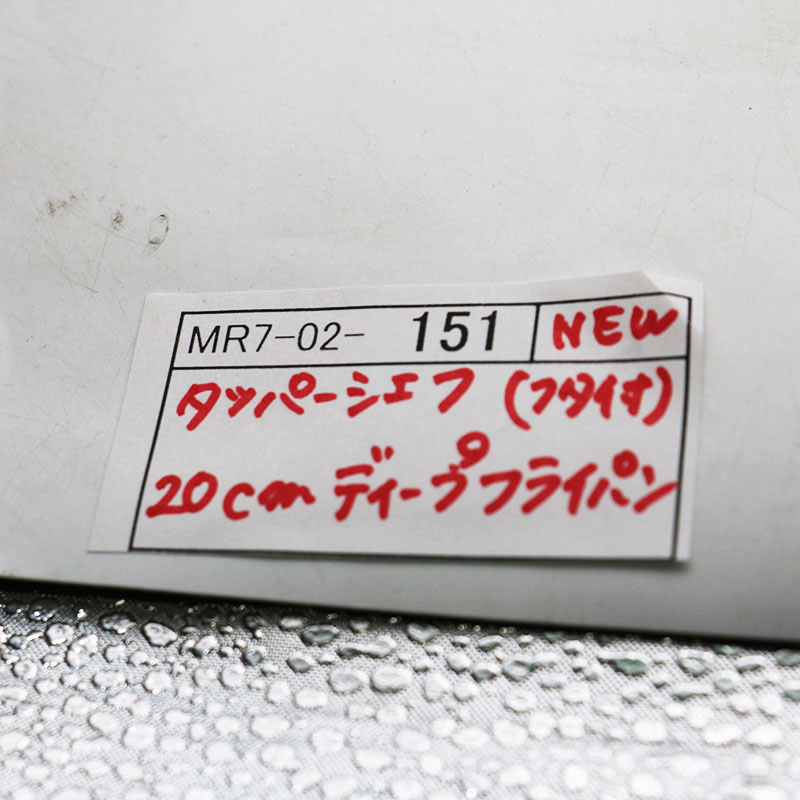 MR7-02- 151 NEW
タッパーシェフ (フタ付)
20cm ディープフライパン